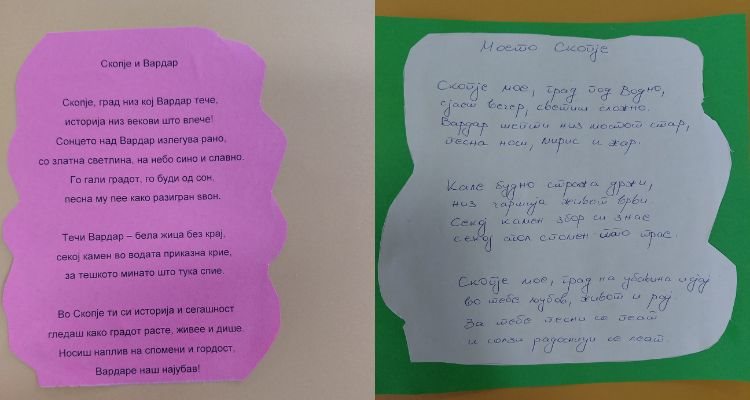 Скопје и Вардар
Скопје, град низ кој Вардар тече,
историја низ векови што влече!
Сонцето над Вардар излегува рано,
со златна светлина, на небо сино и славно.
Го гали градот, го буди од сон,
песна му пее како разигран ѕвон.
Течи Вардар – бела жица без крај,
секој камен во водата приказна крие,
за тешкото минато што тука спие.
Во Скопје ти си историја и сегашност
гледаш како градот расте, живее и дише.
Носиш наплив на спомени и гордост,
Вардаре наш најубав!
Моето Скопје
Скопје мое, град под Водно,
сјаеш вечер, светиш сложно.
Вардар шепти низ мостот стар,
песна носи, мирис и жар.
Кале будно стража држи,
низ чаршија живот врви
Секој камен збор си знае
секој агол спомен што трае.
Скопје мое, град на убавина и сјај
во тебе љубов, живот и рај.
За тебе песни се пеат
и солзи радосници се леат.